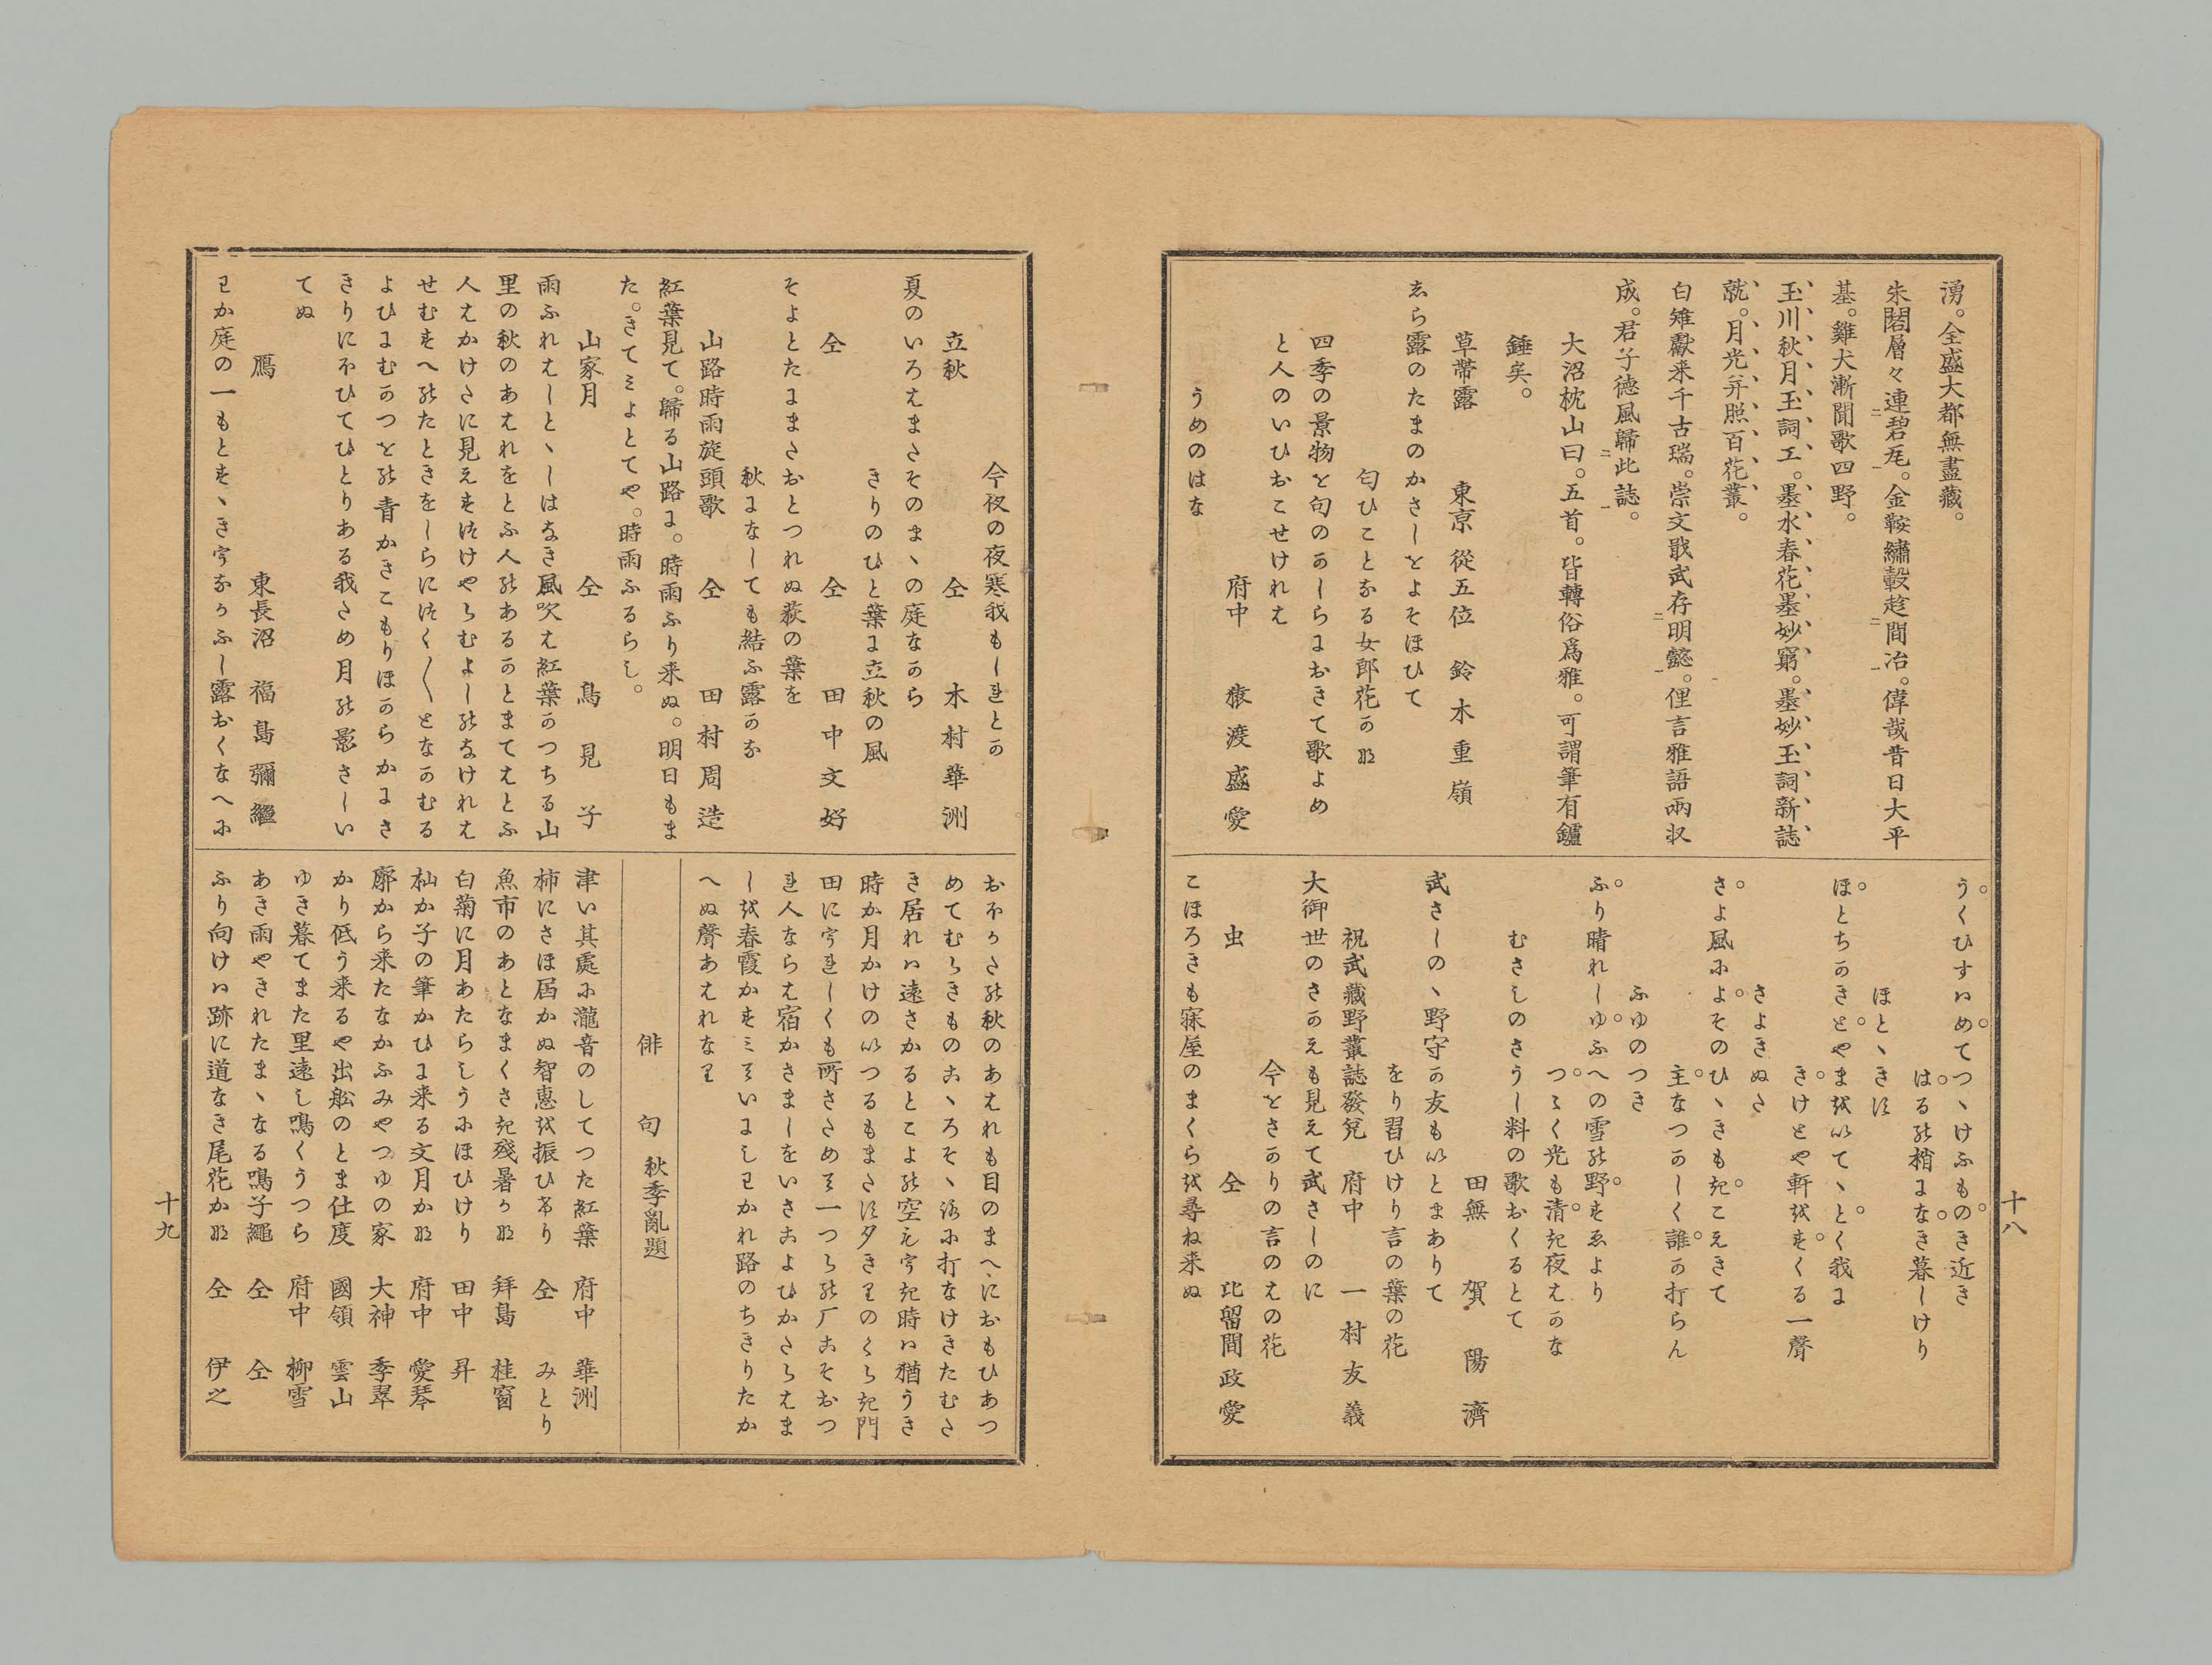 湧。全盛大都無盡藏。
朱閣層々連碧瓦。金鞍繡轂趁間冶。偉哉昔日大平
基。雞犬漸聞歌四野。
玉川秋月玉詞工。墨水春花墨妙窮。墨妙玉詞新誌
就。月光并照百花叢。
白雉獻来千古瑞。崇文戢武存明懿。俚言雅語兩収
成。君子德風歸此誌。
大沼枕山曰。五首。皆轉俗爲雅。可謂筆有鑪
錘矣。
草帶露 東京 從五位 鈴木重嶺
ゑら露のたまのかさしとよそほひて
匂ひことなる女郎花かな
四季の景物を句のかしらにおきて歌よめ
と人のいひおこせけれは
うめのはな 府中 猿渡盛愛
うくひすはめてつゝけふものき近き
はるの梢になき暮しけり
ほとゝきす
ほとちかきとやまをいてゝとく我に
きけとや軒をすくる一聲
さよきぬた
さよ風によそのひゝきもきこえきて
主なつかしく誰か打らん
ふゆのつき
ふり晴れしゆふへの雪の野すゑより
つゝく光も清き夜はかな
むさしのさうし料の歌おくるとて
田無 賀陽濟
武さしのゝ野守か友もいとまありて
をり習ひけり言の葉の花
祝武藏野叢誌發兌 府中 一村友義
大御世のさかえも見えて武さしのに
今をさかりの言のはの花
虫 仝 比留間政愛
こほろきも寐屋のまくらを尋ね来ぬ
今夜の夜寒我もしれとか
立秋 仝 木村華洲
夏のいろはまたそのまゝの庭なから
きりのひと葉に立秋の風
仝 仝 田中文好
そよとたにまたおとつれぬ荻の葉を
秋になしても結ふ露かな
山路時雨旋頭歌 仝 田村周造
紅葉見て。歸る山路に。時雨ふり来ぬ。明日もま
た。きてミよとてや。時雨ふるらし。
山家月 仝 鳥見子
雨ふれはしとゝしはなき風吹は紅葉かつちる山
里の秋のあはれをとふ人のあるかとまてはとふ
人はかけたに見えすつけやらむよしのなけれは
せむすへのたときをしらにつく〱となかむる
よひにむかつをの青かきこもりほからかにさ
きりにほひてひとりある我ため月の影さしい
てぬ
鴈 東長沼 福島彌繼
わか庭の一もとすゝきうなかふし露おくなへに
おほかた秋のあはれも目のまへにおもひあつ
めてむらきものこゝろそゝろに打なけきたむた
き居れは遠さかるとこよの空もうき時は猶うき
時か月かけのいつるもまたす夕きりのくらき門
田にうれしくも所さためて一つらの厂こそおつ
れ人ならは宿かさましをいさこよひかたらはま
しを春霞かすミていにしわかれ路のちきりたか
へぬ聲あはれなり
俳句 秋季亂題
津い其處に瀧音のしてつた紅葉 府中 華洲
柿にさほ届かぬ智惠を振ひけり 仝 みとり
魚市のあとなまくさき殘暑かな 拜島 桂窗
白菊に月あたらしうにほひけり 田中 昇
杣か子の筆かひに来る文月かな 府中 愛琴
廓から来たなかふみやつゆの家 大神 季翠
かり低う来るや出舩のとま仕度 國領 雲山
ゆき暮てまた里遠し鳴くうつら 府中 柳雪
あき雨やきれたまゝなる鳴子繩 仝 仝
ふり向けは跡に道なき尾花かな 仝 伊之
十八
十九